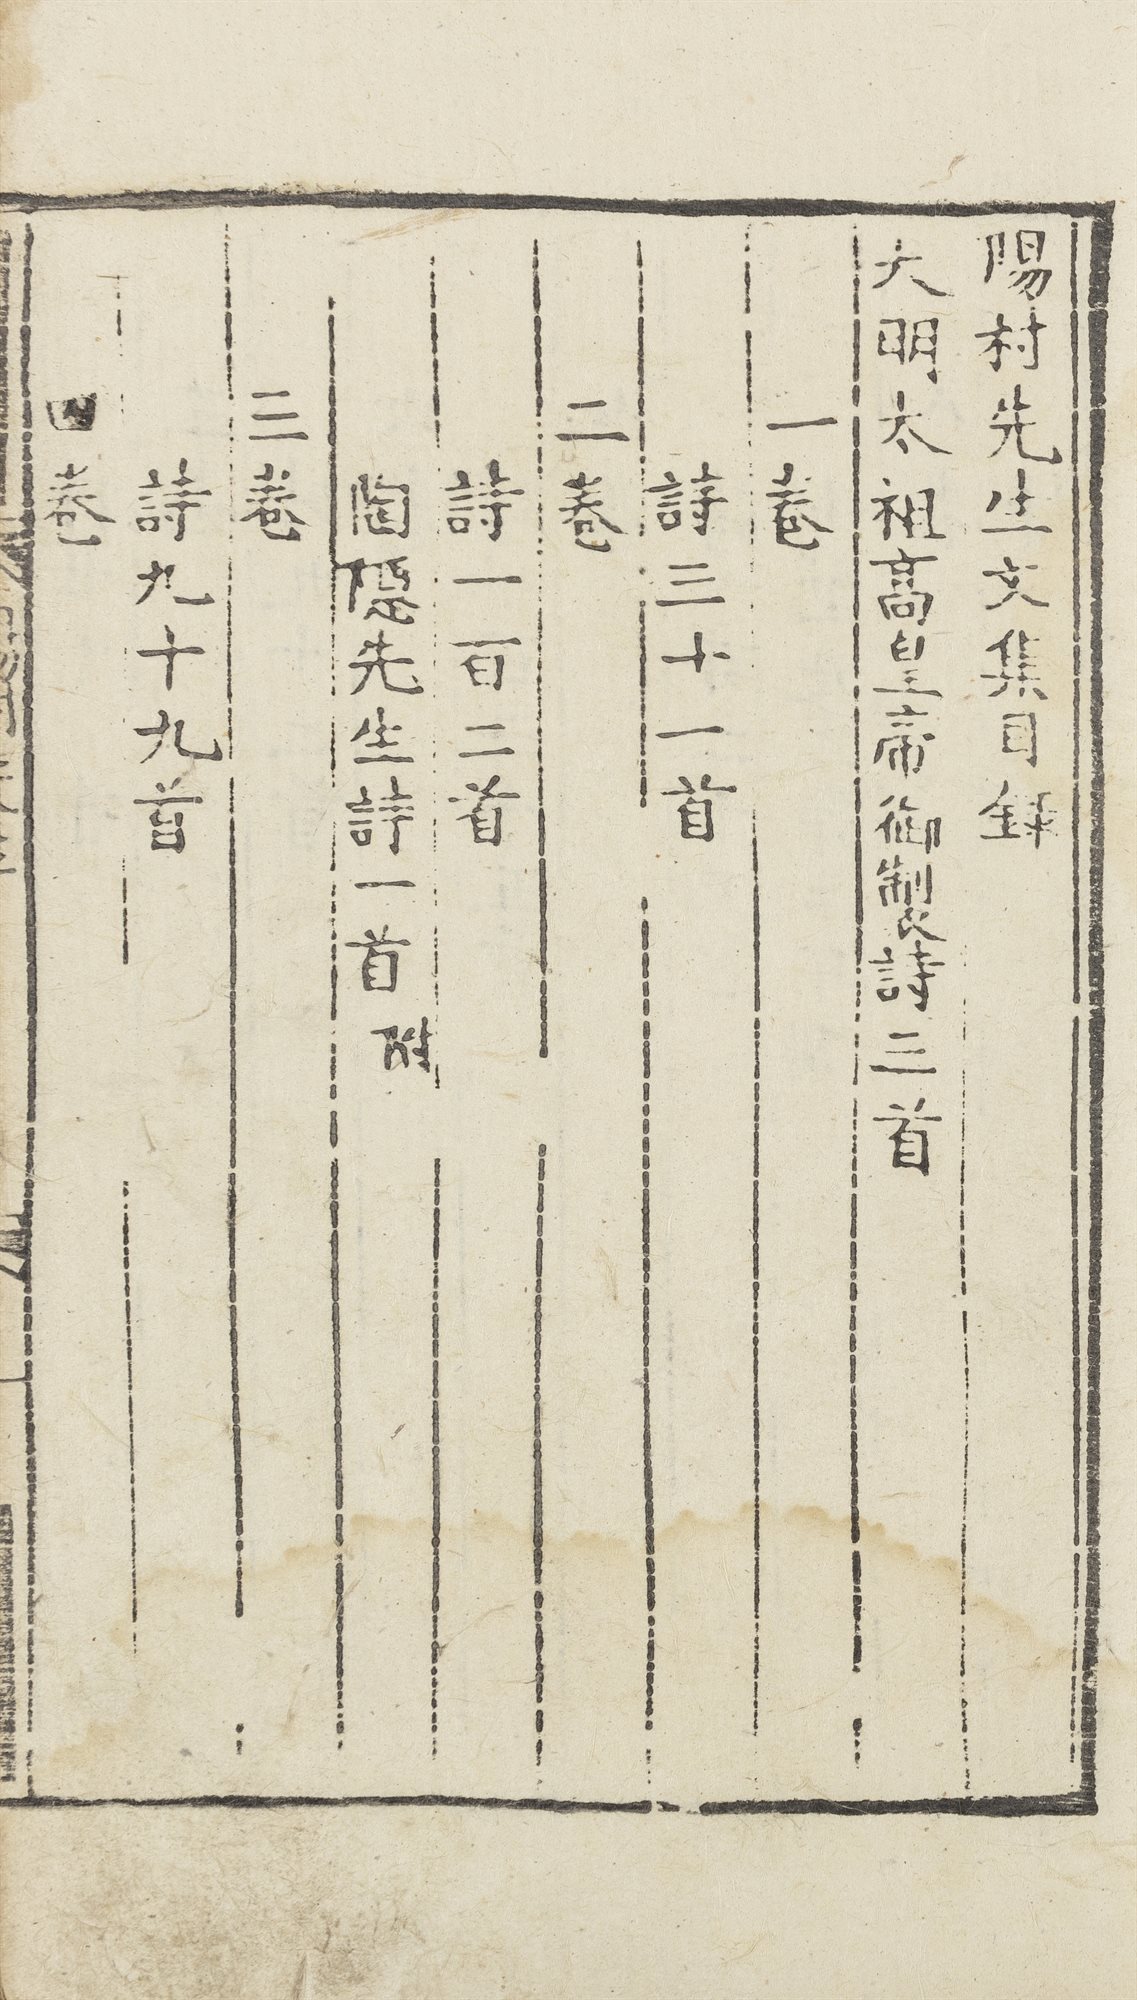 陽村先生文集目錄
大明太祖高皇帝御製詩三首
一卷
詩三十一首
二卷
詩一百二首
陶隱先生詩一首 幷
三卷
詩九十九首
四卷